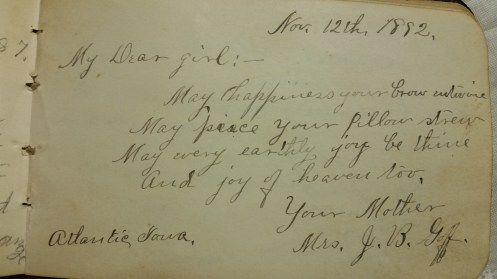 Nov. 12th, 1892.
My Dear girl:-
May happiness your brow entwine
May piece your pillow strew
May every earthly joy be thine
And joy of heaven too.
Your Mother
Atlantic, Iowa.
Mrs. J. B. Goff.